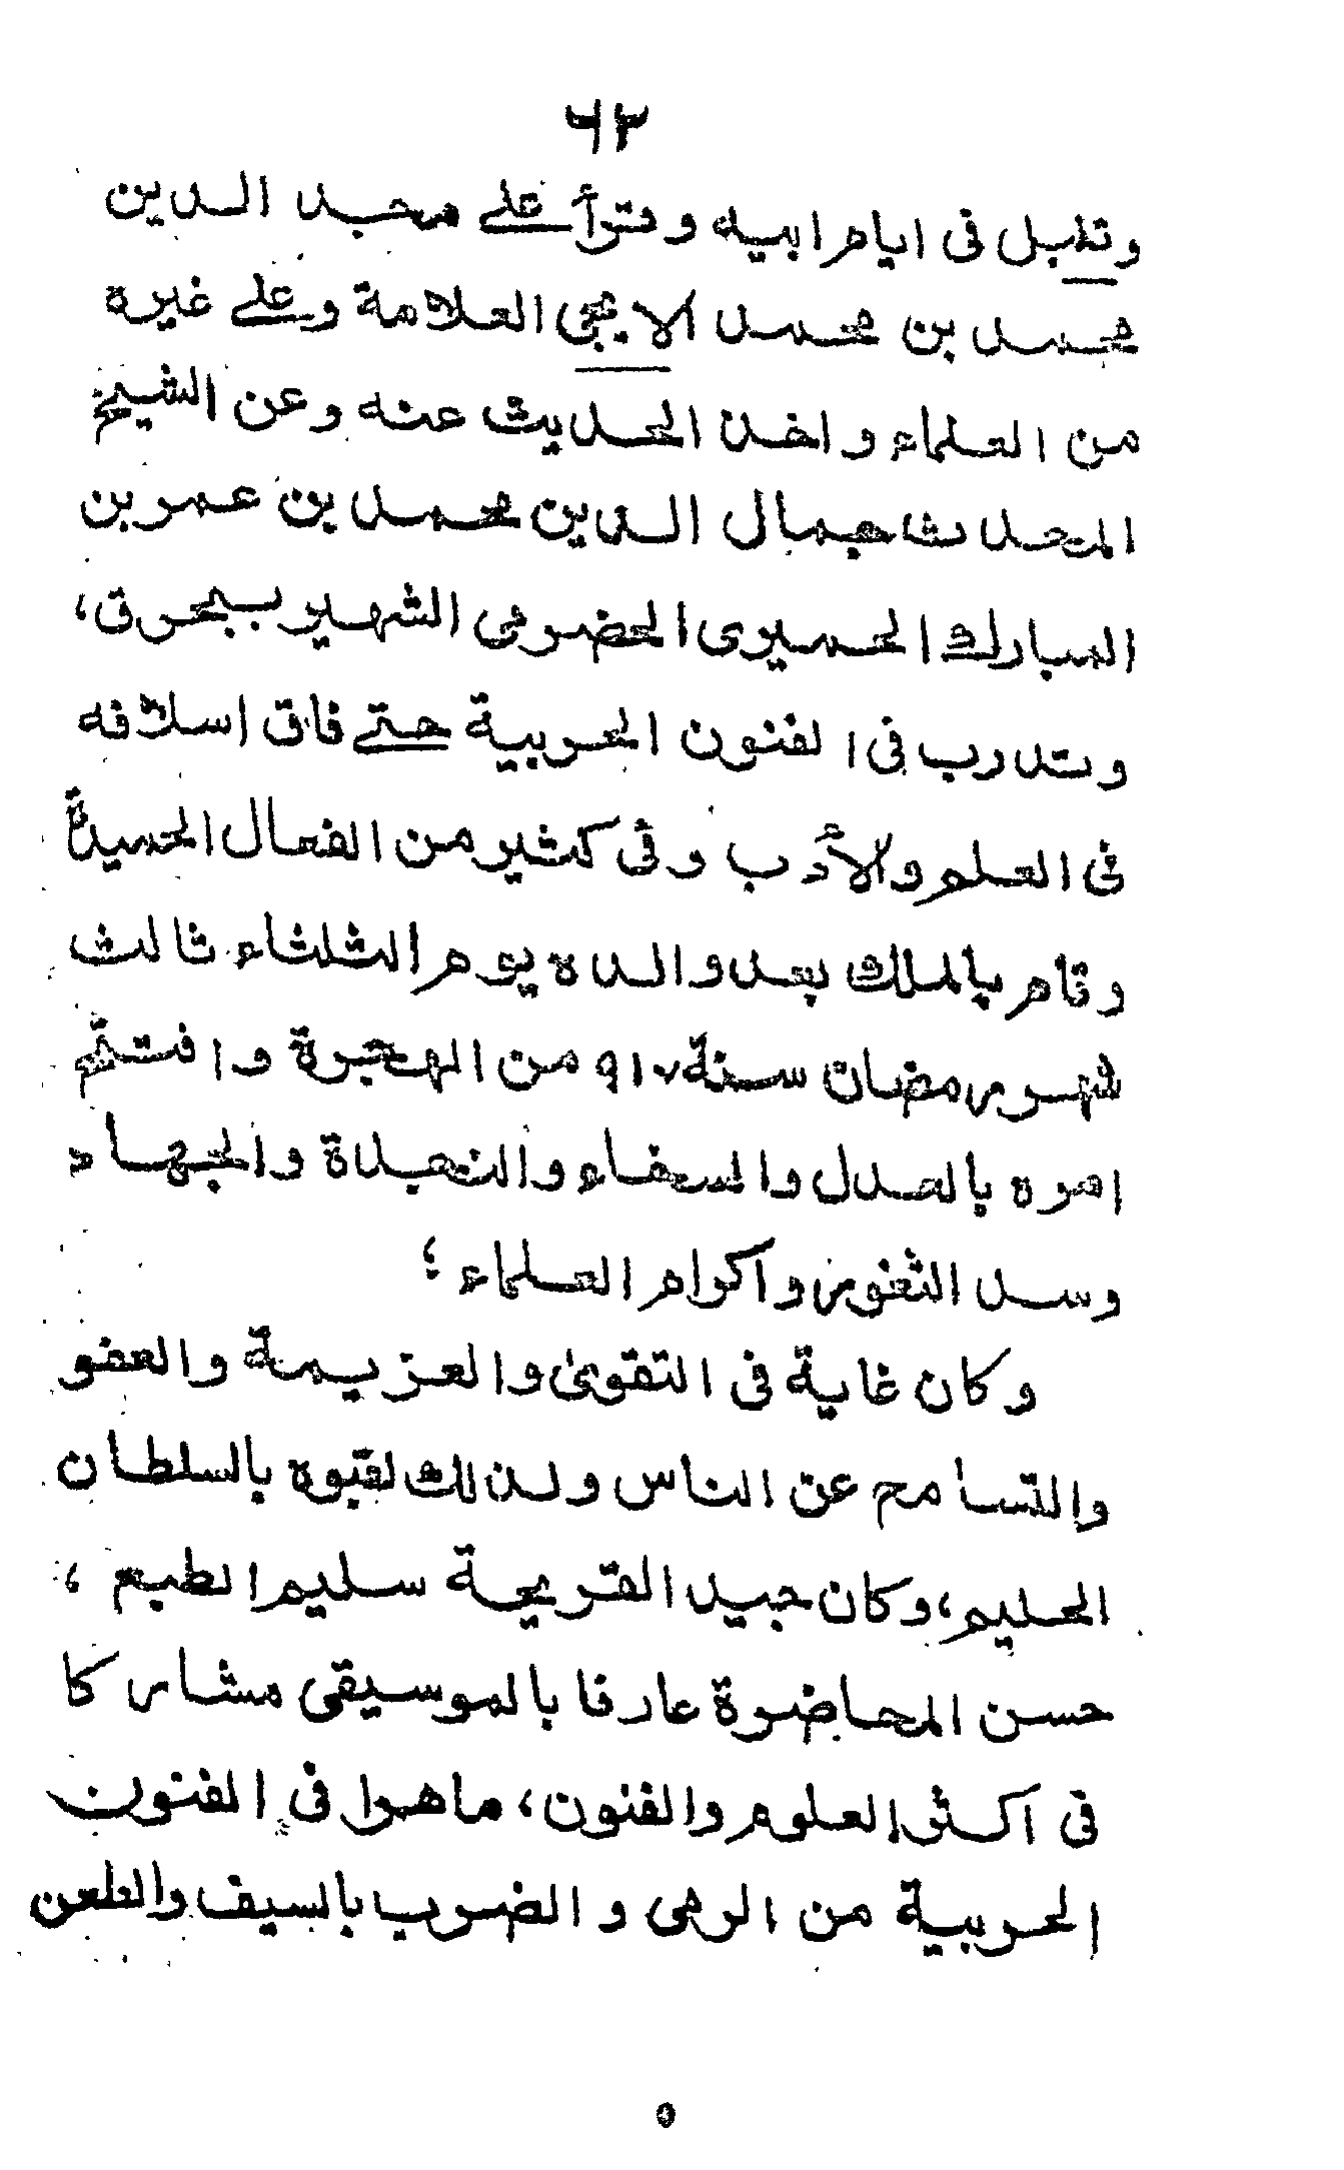 ٦٢
وتنبل فى ايام ابيه وقرأ على مجد الدين
محمد بن محمد الايجى العلامة وعلى غيره
من العلماء واخذ الحديث عنه وعن الشيخ
المحدث جمال الدين محمد بن عمر بن
المبارك الحميرى الحضرمى الشهير ببحرق،
وتدرب فى الفنون الحربية حتى فاق اسلافه
فى العلم والأدب وفى كثير من الفعال الحميدة
وقام بالملك بعد والده يوم الثلثاء ثالث
شهر رمضان سنة ٩١٧ من الهجرة وافتتح
امره بالعدل والسخاء والنجدة والجهاد
وسد الثغور واكرام العلماء ؛
وكان غاية فى التقوىٰ والعزيمة والعفو
والتسامح عن الناس ولذلك لقبوه بالسلطان
الحليم، وكان جيد القريحة سليم الطبع ،
حسن المحاضرة عارفا بالموسيقى مشاركا
فى اكثر العلوم والفنون، ماهرا فى الفنون
الحربية من الرمى و الضرب بالسيف والطعن